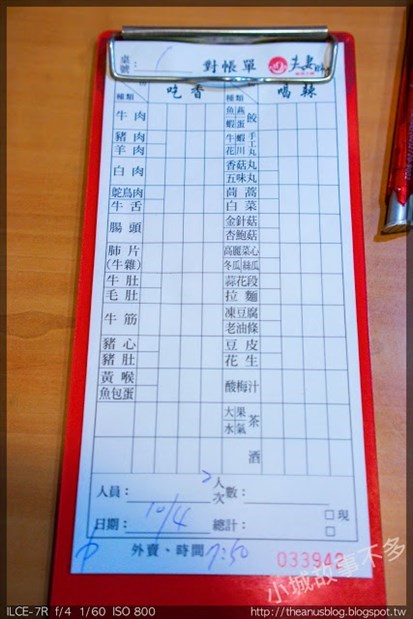 桌號: 對帳單 夫妻
種類 吃香 種類 喝辣
牛肉 魚燕蝦蛋餃
豬肉 牛蝦花川手工丸
羊肉 香菇丸
白肉 五味丸
鴕鳥肉 茼蒿
牛舌 白菜
腸頭 金針菇
杏鮑菇
肺片(牛雜) 高麗菜心
冬瓜 絲瓜
牛肚 蒜花段
毛肚 拉麵
牛筋 凍豆腐
老油條
豬心 豆皮
豬肚 花生
黃喉 酸梅汁
魚包蛋
大果水氣茶
酒
人員: 人次數: 2
日期: 10/4 總計: 現
外賣、時間 7:50 033942
小城故事不多
ILCE-7R f/4 1/60 ISO 800 http://theanusblog.blogspot.tw